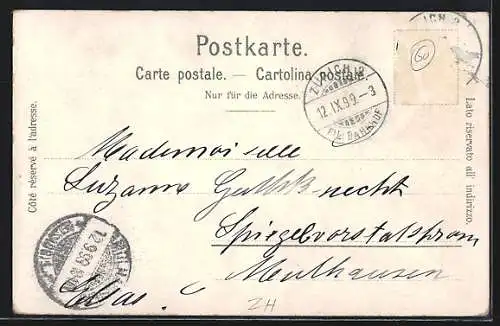 Postkarte.
Carte postale. — Cartolina postale.
Nur für die Adresse.
Côté réservé à l'adresse.
Lato riservato all' indirizzo.
60
ZÜRICH 12
12. IX. 99. – 3
BAHNHOF
Mademoiselle
Suzanne Guthknecht
Mulhausen
Elsas.
12.9.99
ZH